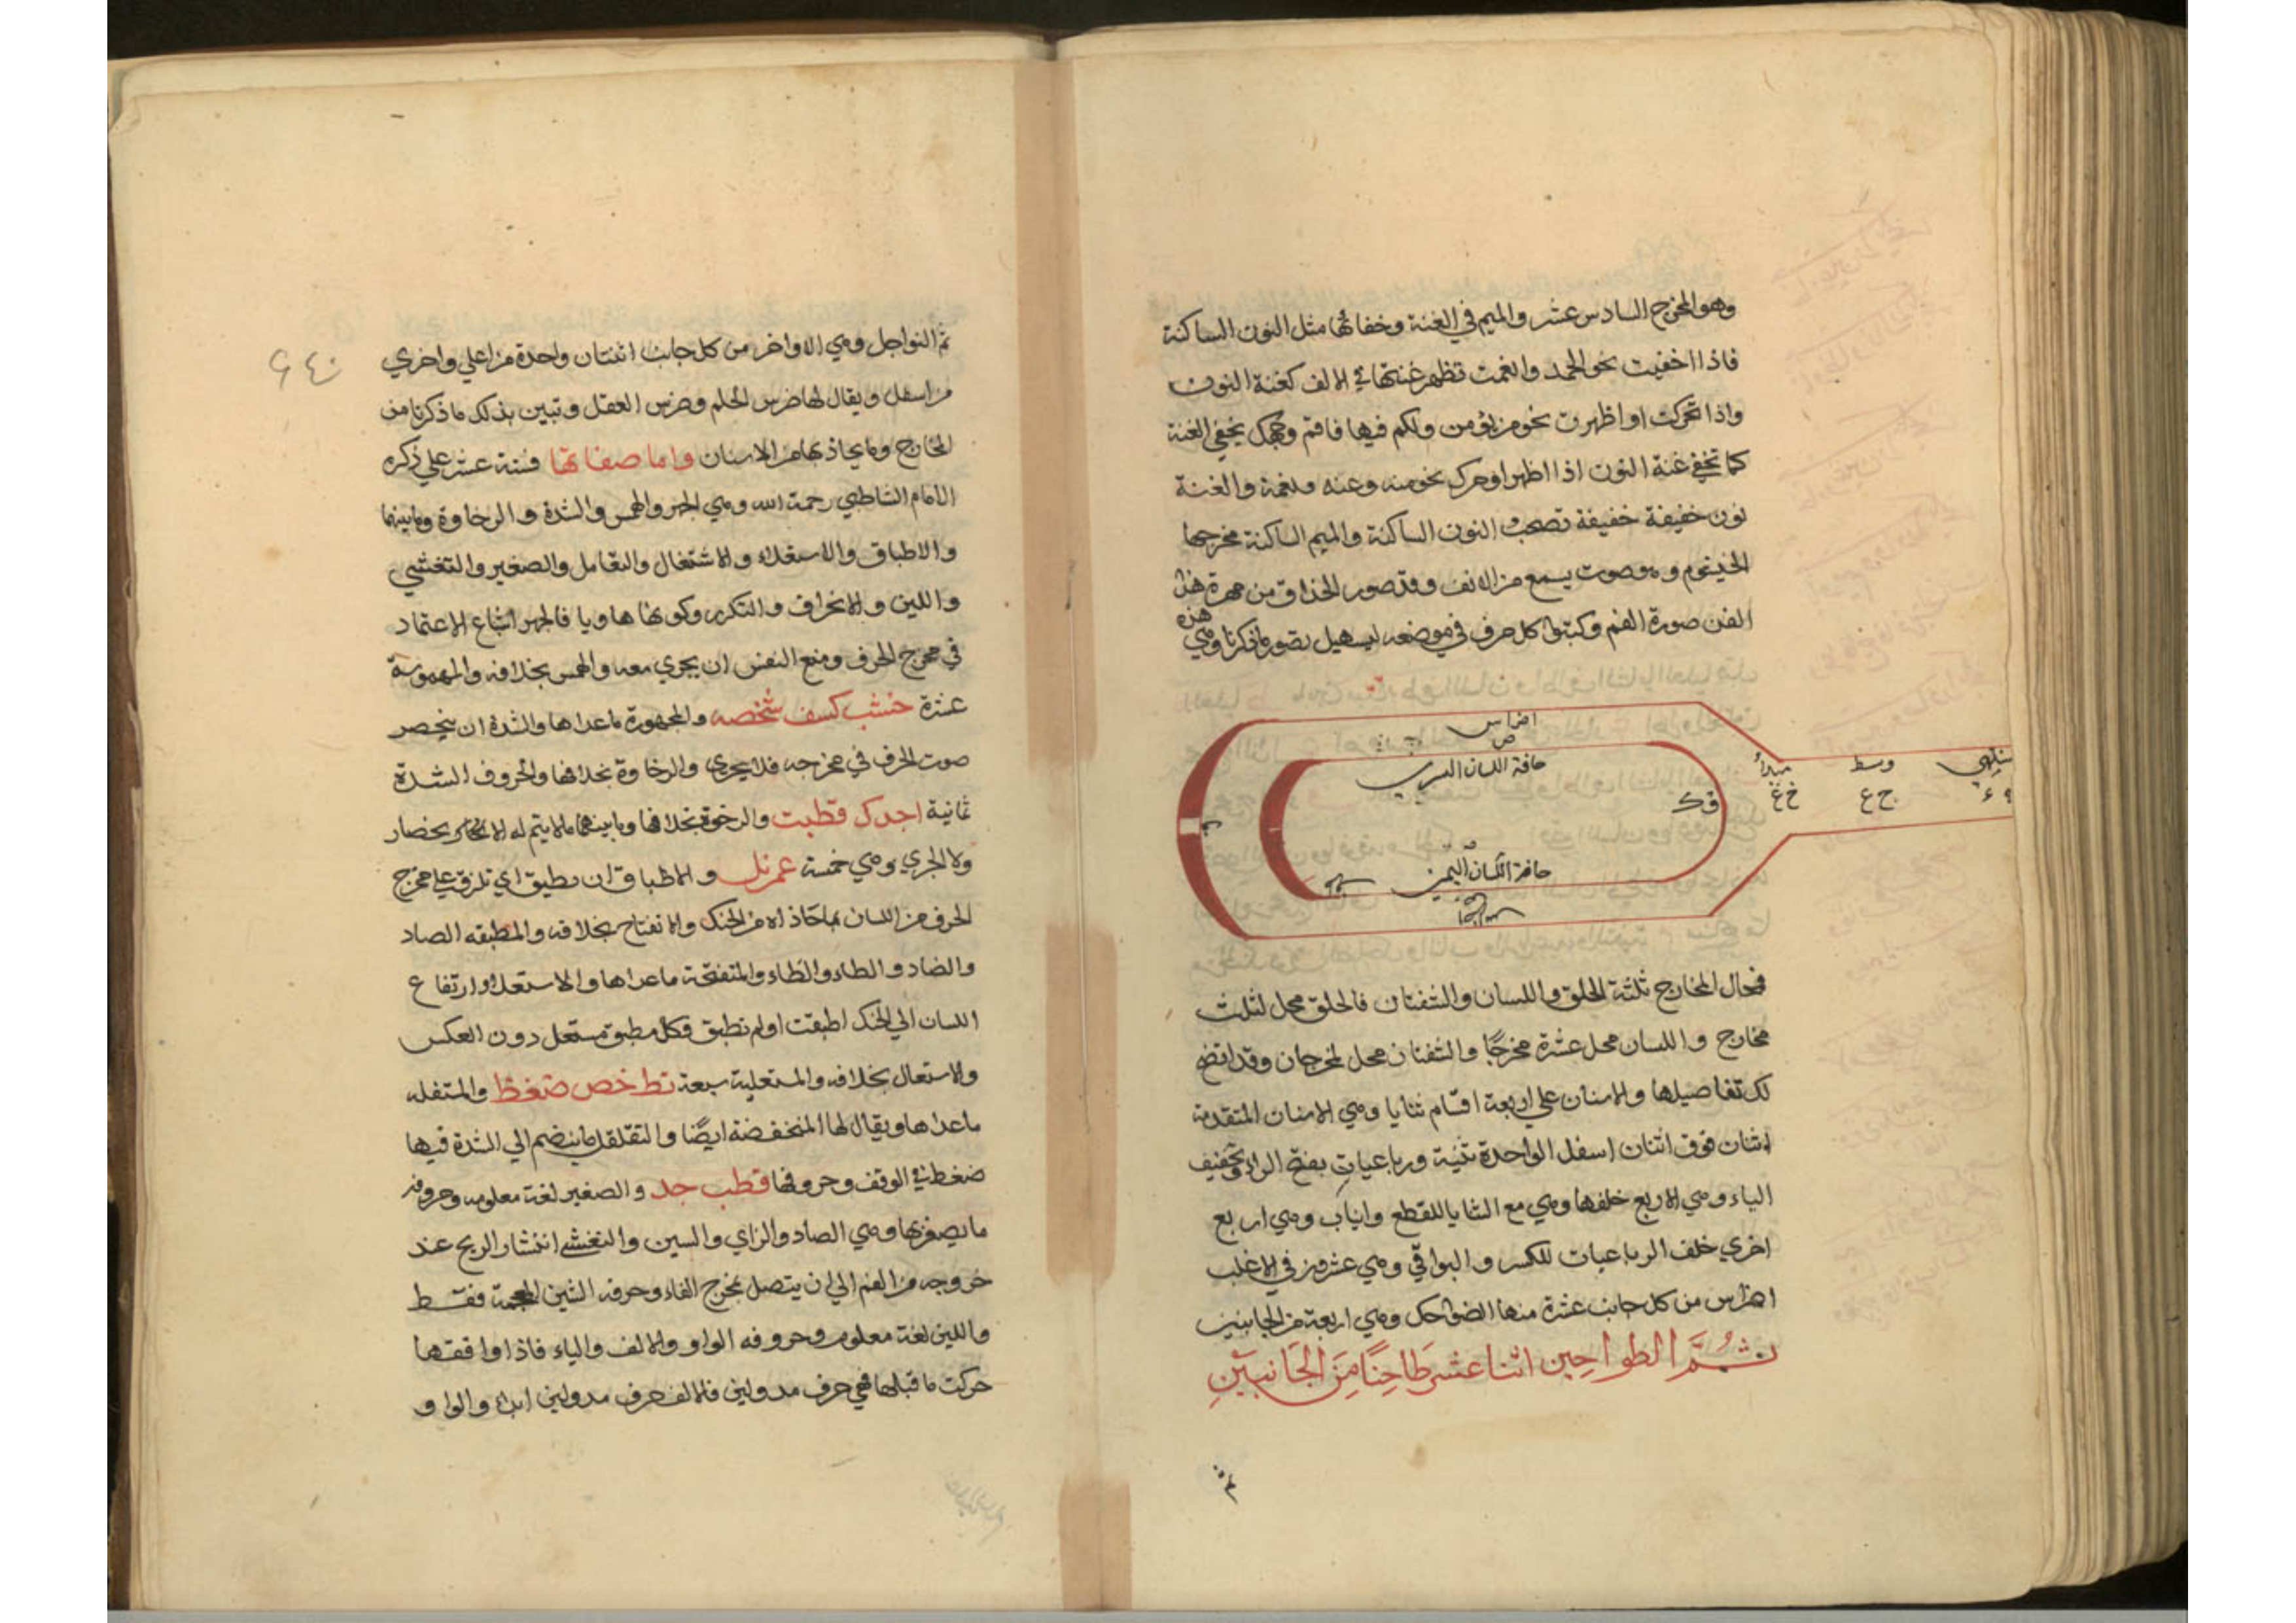 وهو المخرج السادس عشر والميم في الغنة وخفائها مثل النون الساكنة
فاذا اخفيت نحو الحمد وانعمت تظهر غنتها في الالف كغنة النون
واذا تحركت او اظهرت نحو من يؤمن ولكم فيها فاقم وجهك يخفي الغنة
كما تخفي غنة النون اذا اظهر او حرك نحو منه وعنه والغنة
نون خفيفة خفيفة تصحب النون الساكنة والميم الساكنة مخرجها
الخيشوم وهو صوت يسمع من الانف وقد صور الحذاق من مهرة هذا
الفن صورة الفم وكتبوا كل حرف في موضعه ليسهيل تصور ما ذكرنا وهي
هذه
اضراس
ض
حافة اللسان اليسري
ق ك
مبدأ
خ غ
وسط
ح ع
منتهي
حافة اللسان اليمني
فمحال المخارج ثلثة الحلق واللسان والشفتان فالحلق محل لثلث
مخارج واللسان محل عشرة مخرجًا والشفتان محل لمخرجان وقد اتضح
لك تفاصيلها والاسنان علي اربعة اقسام ثنايا وهي الاسنان المتقدمة
اثنان فوق اثنان اسفل الواحدة ثنية ورباعيات بفتح الراء وتخفيف
الياء وهي الاربع خلفها وهي مع الثنايا للقطع وانياب وهي اربع
اخري خلف الرباعيات للكسر والبواقي وهي عشرون في الاغلب
اضراس من كل جانب عشرة منها الضواحك وهي اربعة من الجانبين
ثُمَّ الطواحِين اثنا عشر طَاحِنًا مِنَ الجَانِبَيْنِ
ثم النواجل وهي الاواخر من كل جانب اثنتان واحدة من اعلي واخري
من اسفل ويقال لها ضرس الحلم وضرس العقل وتبين بذلك ما ذكرنا من
المخارج وما يحاذيها من الاسنان واما صفاتها فستة عشر علي ذكره
الامام الشاطبي رحمة الله وهي الجهر والهمس والشدة والرخاوة وما بينهما
والاطباق والاستعلاء والاشتغال والصفير والتفشي
واللين والانحراف والتكرر وكونها هاويا فالجهر اشباع الاعتماد
في مخرج الحرف ومنع النفس ان يجري معه والهمس بخلافه والمهموسة
عشرة حشب كسف شخصه والمجهورة ما عداها والشدة ان ينحصر
صوت الحرف في مخرجه فلا يجري والرخاوة بخلافها والحروف الشدة
ثمانية اجدك قطبت والرخوة بخلافها وما بينهما ما لا يتم له الانحصار
ولا الجري وهي خمسة عمرنل والاطباق ان يطبق اي تلزق علي مخرج
الحرف من اللسان ما حاذاه من الحنك والانفتاح بخلافه والمطبقه الصاد
والضاد والطاء والظاء والمنفتحة ما عداها والاستعلاء ارتفاع
اللسان الي الحنك اطبقت او لم تطبق فكل مطبق مستعل دون العكس
والاستعال بخلافه والمستعلية سبعة قط خص ضغظ والمتفله
ما عداها ويقال لها المنخفضة ايضًا والتقلقل ما ينضم الي الشدة فيها
ضغط في الوقف وحروفها قطب جد والصفير لغة معلومه وحروفه
ما يصفر بها وهي الصاد والزاي والسين والتفشي انتشار الريح عند
خروجه من الفم الي ان يتصل بمخرج الفاء وحرفه الشين المعجمة فقط
واللين لغة معلوم وحروفه الواو والالف والياء فاذا وافقها
حركت ما قبلها فهي حرف مد ولين فالالف حرف مد ولين ابدا والواو